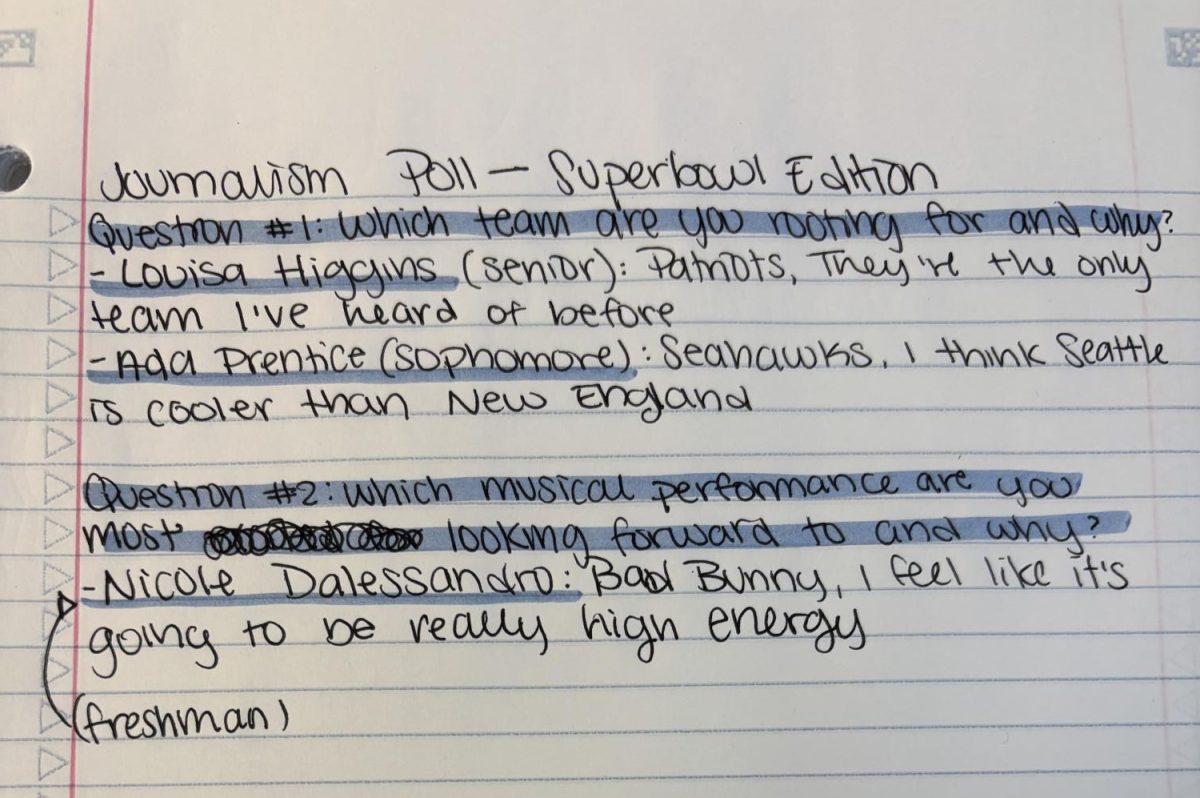 Journalism Poll — Superbowl Edition
Question #1: Which team are you rooting for and why?
- Louisa Higgins (senior): Patriots, They're the only
team I've heard of before
- Ada Prentice (sophomore): Seahawks, I think Seattle
is cooler than New England
Question #2: Which musical performance are you
most looking forward to and why?
- Nicole Dalessandro: Bad Bunny, I feel like it's
going to be really high energy
(freshman)